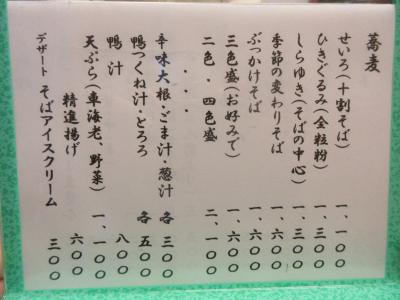 蕎麦
せいろ(十割そば) 一、一〇〇
ひきぐるみ(全粒粉) 一、三〇〇
しらゆき(そばの中心) 一、三〇〇
季節の変わりそば 一、六〇〇
ぶっかけそば 一、六〇〇
三色盛(お好みで) 一、六〇〇
二色・四色盛 二、一〇〇
・・・
辛味大根・ごま汁・葱汁 各三〇〇
鴨つくね汁・とろろ 各五〇〇
鴨汁 八〇〇
天ぷら(車海老、野菜) 一、一〇〇
精進揚げ 六〇〇
デザート そばアイスクリーム 三〇〇